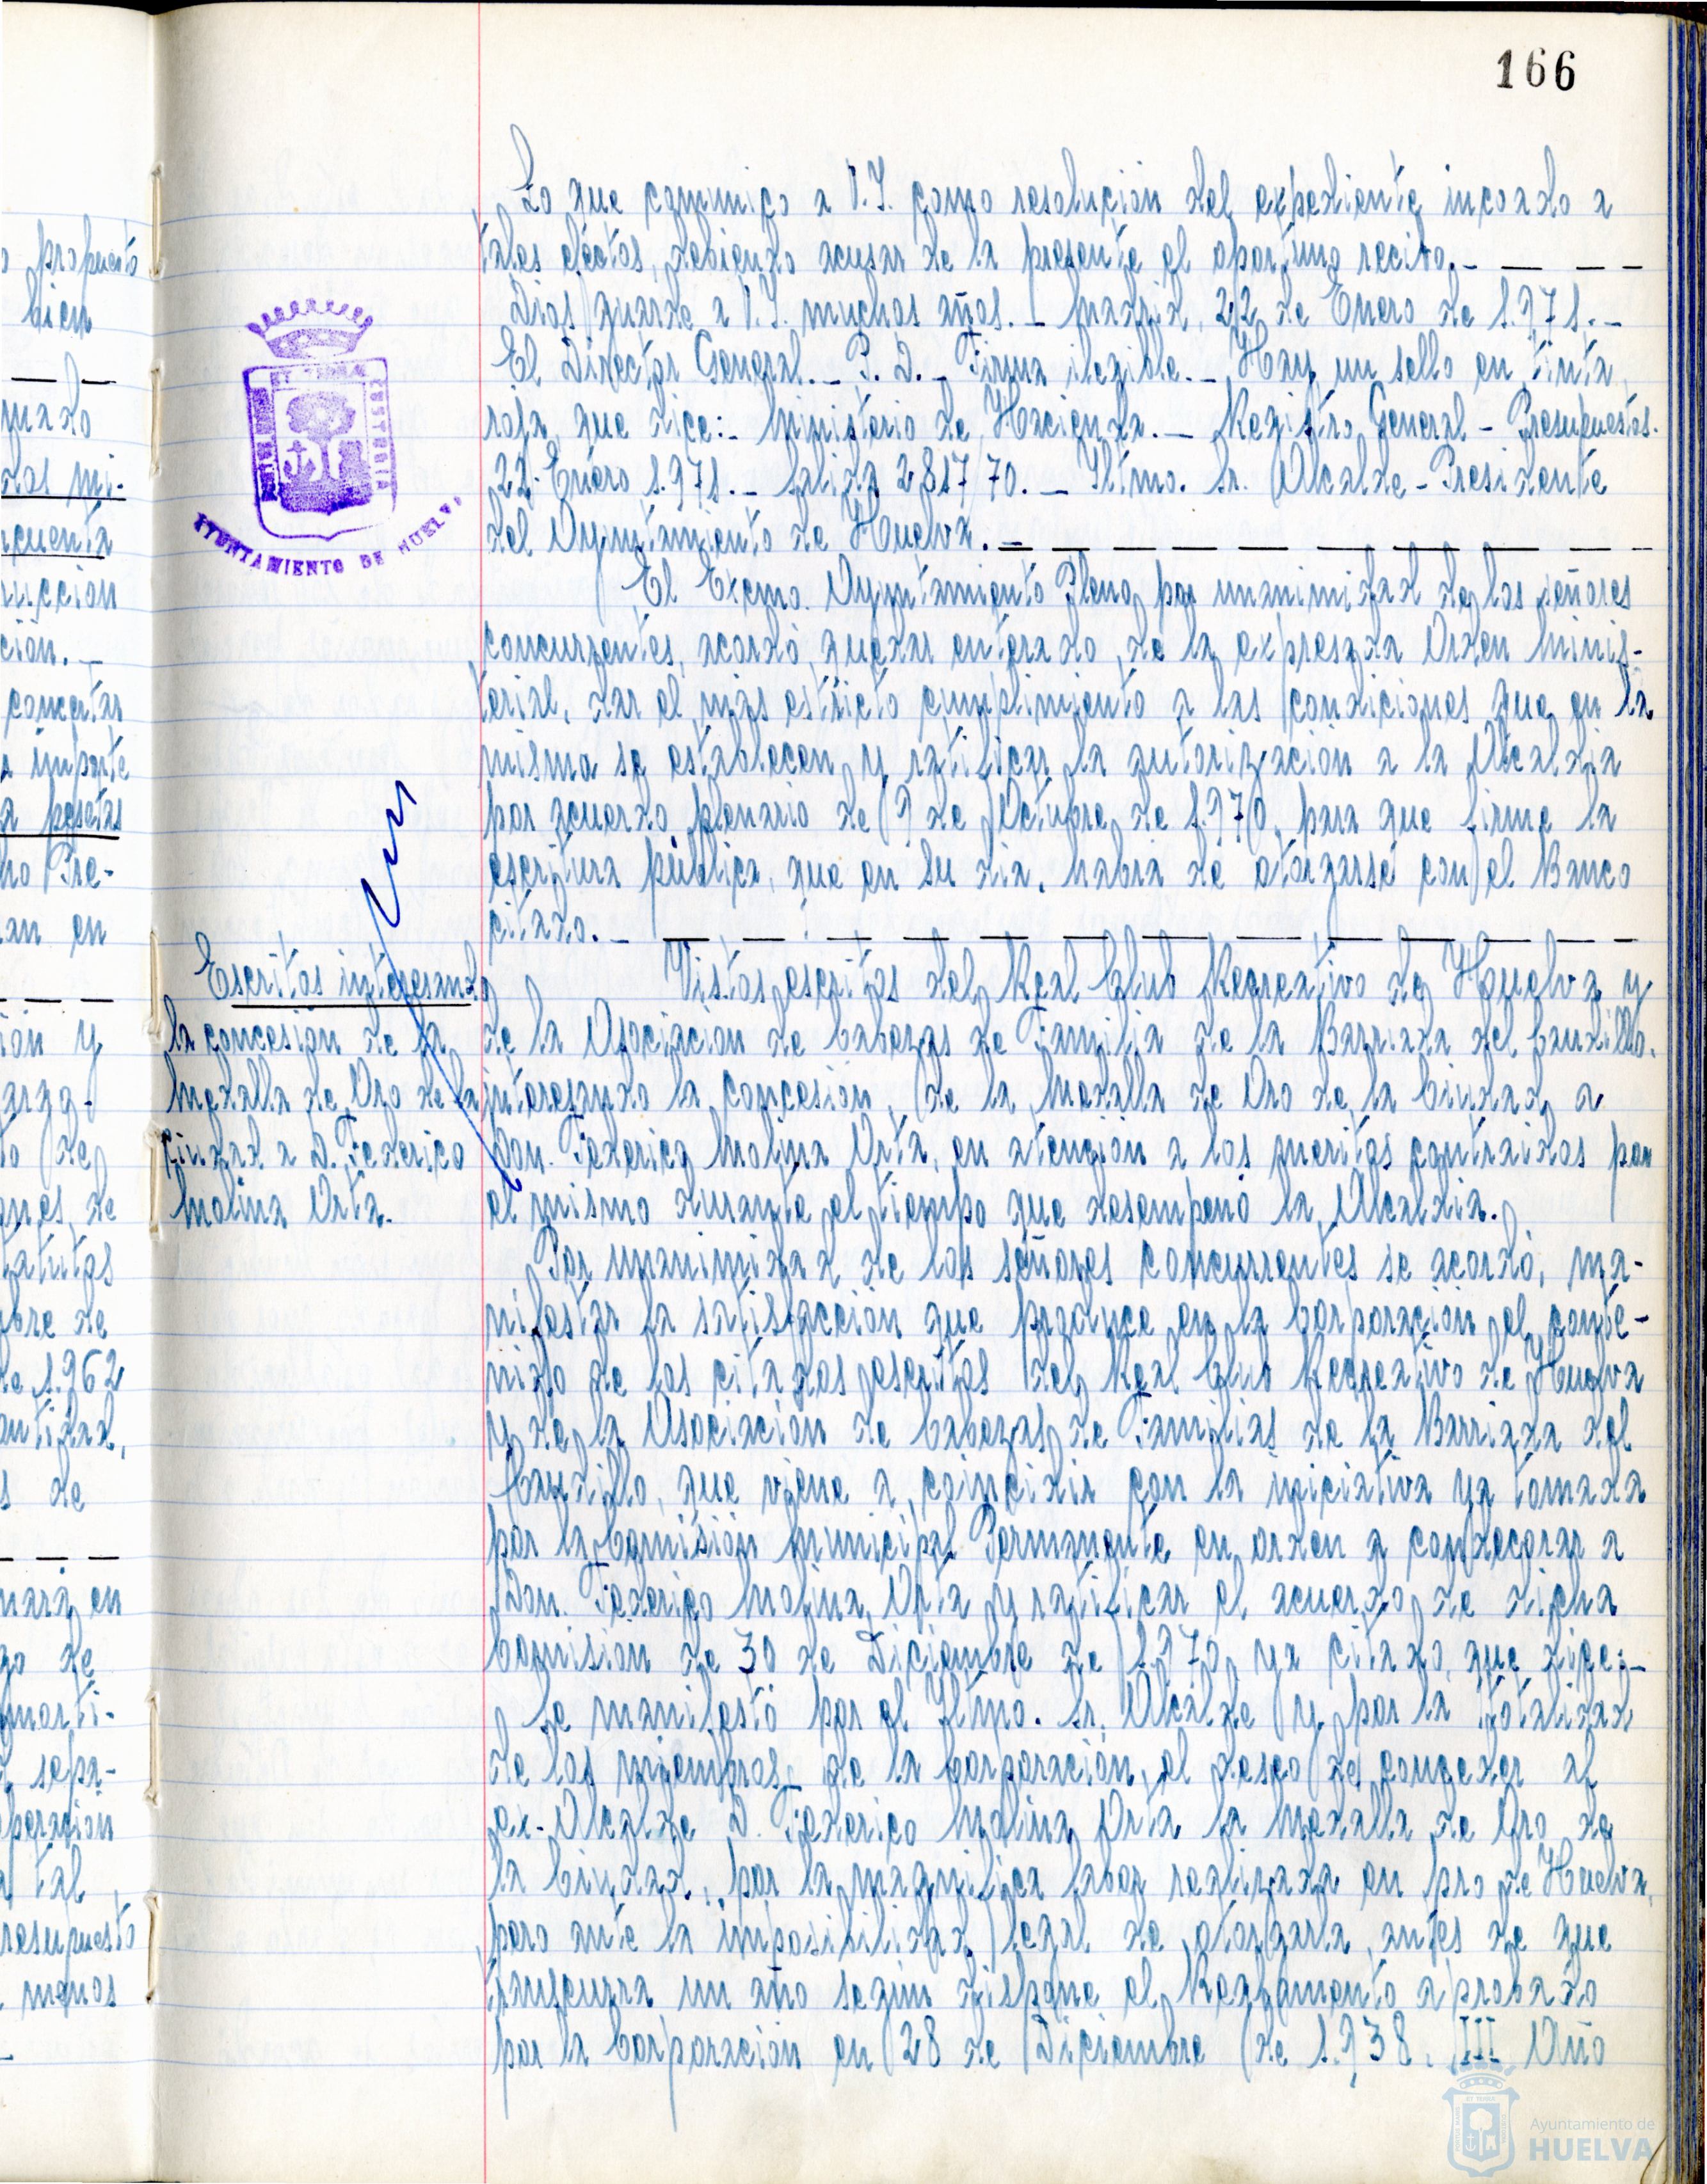 166
Lo que comunico a V.I. como resolución del expediente incoado a
tales efectos, debiendo acusar de la presente el oportuno recibo.- — — —
Dios guarde a V.I. muchos años.- Madrid, 22 de Enero de 1.971.-
El Director General.- P. D.- Firma ilegible.- Hay un sello en tinta
roja que dice:- Ministerio de Hacienda.- Registro General - Presupuestos.
22. Enero 1.971.- Salida 2817 70.- Iltmo. Sr. Alcalde-Presidente
del Ayuntamiento de Huelva.- — — — — — — — — —
El Excmo. Ayuntamiento Pleno, por unanimidad de los señores
concurrentes, acordó, quedar enterado, de la expresada Orden Minis-
terial, dar el más estricto cumplimiento a las condiciones que en la
misma se establecen y ratificar la autorización a la Alcaldia
por acuerdo plenario de 9 de Octubre de 1.970, para que firme la
escritura pública, que en su dia, habrá de otorgarse con el Banco
citado.- — — — — — — — — — — — —
Escritos interesando
la concesión de la
Medalla de Oro de la
Ciudad a D. Federico
Molina Orta.
Vistos escritos del Real Club Recreativo de Huelva y
de la Asociacion de Cabezas de Familia de la Barriada del Caudillo,
interesando la concesión, de la Medalla de Oro de la Ciudad a
Don. Federico Molina Orta, en atención a los meritos contraidos por
el mismo durante el tiempo que desempeñó la Alcaldia.
Por unanimidad de los señores concurrentes se acordó, ma-
nifestar la satisfacción que produce en la Corporación el conte-
nido de los citados escritos del Real Club Recreativo de Huelva
y de la Asociación de Cabezas de Familias de la Barriada del
Caudillo, que viene a coincidir con la iniciativa ya tomada
por la Comisión Municipal Permanente en orden a condecorar a
Don. Federico Molina Orta y ratificar el acuerdo de dicha
Comision de 30 de Diciembre de 1.970, ya citado, que dice:-
Se manifestó por el Iltmo. Sr. Alcalde y por la totalidad
de los miembros de la Corporación, el deseo de conceder al
ex-Alcalde D. Federico Molina Orta la Medalla de Oro de
la Ciudad, por la magnifica labor realizada en pro de Huelva,
pero ante la imposibilidad legal de otorgarla, antes de que
transcurra un año según dispone el Reglamento aprobado
por la Corporación en 28 de Diciembre de 1.938. III Año
AYUNTAMIENTO DE HUELVA
Ayuntamiento de
HUELVA